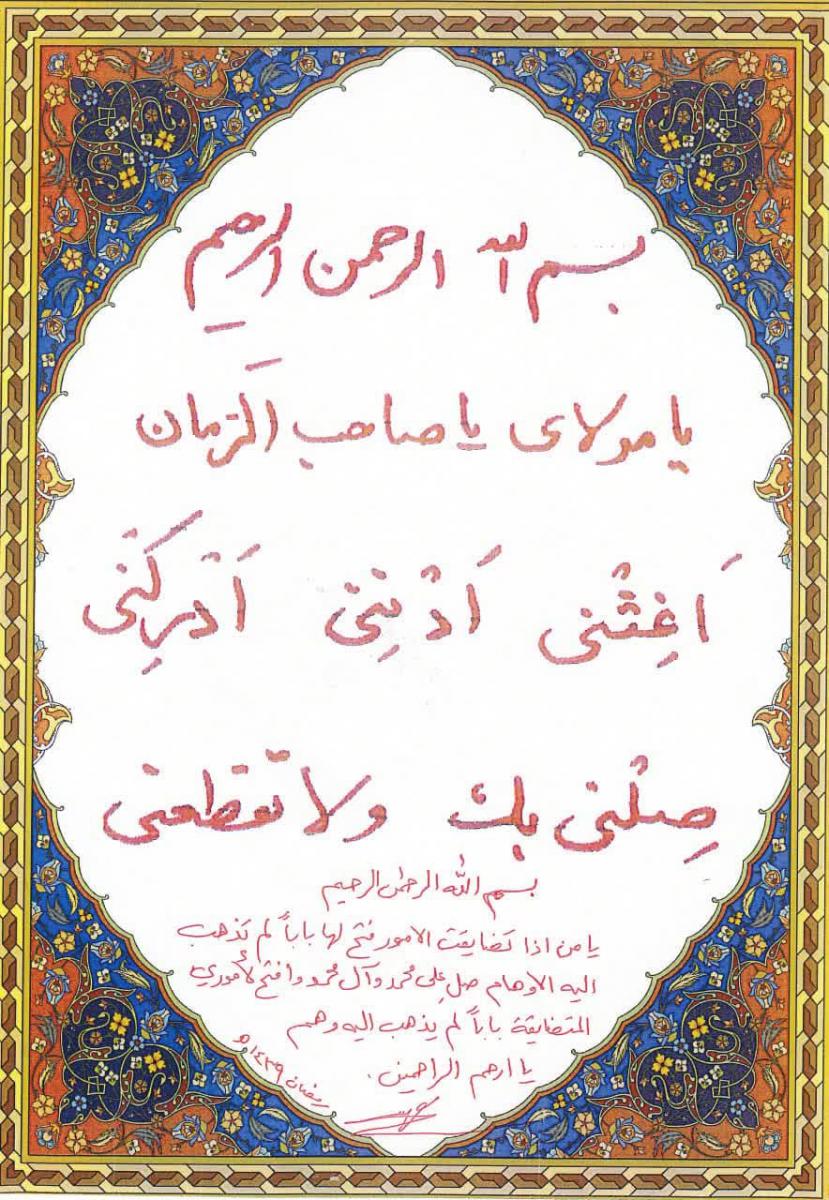 بسم الله الرحمن الرحيم
يا مولاى يا صاحب الزمان
اَغِثْنى اَدْنِنى اَدْرِكْنى
صِلْنى بك ولا تقطعنى
بسم الله الرحمن الرحيم
يا من اذا تضايقت الامور فتح لها باباً لم تذهب
اليه الاوهام صل على محمد وآل محمد وافتح لأموري
المتضايقة باباً لم يذهب اليه وهم
يا ارحم الراحمين.
رمضان ١٤٣٩ه